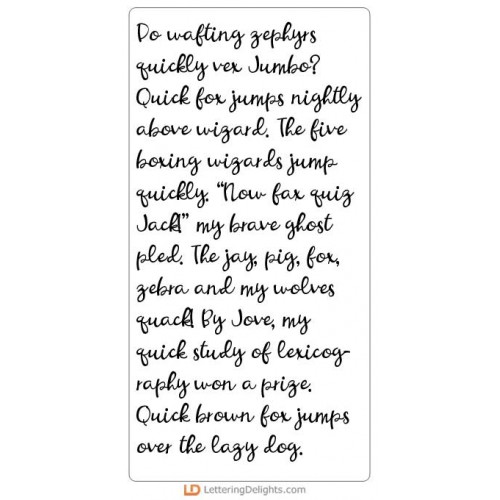 Do wafting zephyrs
quickly vex Jumbo?
Quick fox jumps nightly
above wizard. The five
boxing wizards jump
quickly. "Now fax quiz
Jack!" my brave ghost
pled. The jay, pig, fox,
zebra and my wolves
quack! By Jove, my
quick study of lexicog-
raphy won a prize.
Quick brown fox jumps
over the lazy dog.
LD LetteringDelights.com